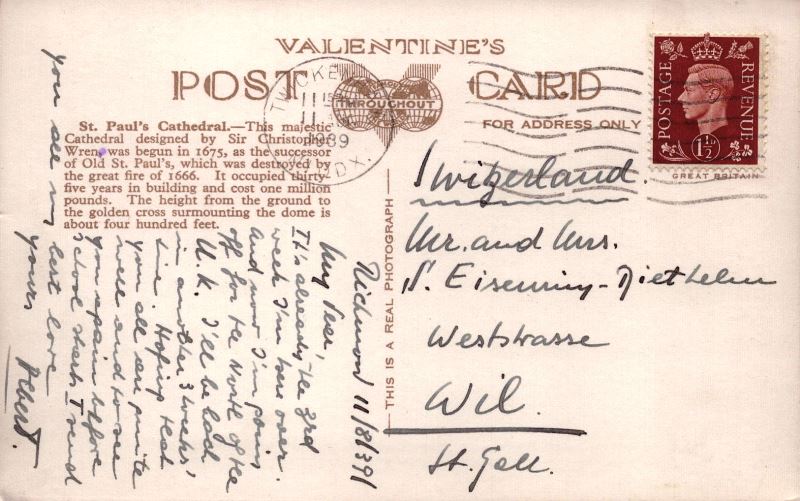 VALENTINE'S
POST CARD
THROUGHOUT
FOR ADDRESS ONLY
St. Paul's Cathedral.—This majestic
Cathedral designed by Sir Christopher
Wren, was begun in 1675, as the successor
of Old St. Paul's, which was destroyed by
the great fire of 1666. It occupied thirty-
five years in building and cost one million
pounds. The height from the ground to
the golden cross surmounting the dome is
about four hundred feet.
THIS IS A REAL PHOTOGRAPH
1939
POSTAGE
REVENUE
1½D
GREAT BRITAIN
Switzerland.
Mr. and Mrs.
Eisenring-Diethelm
Weststrasse
Wil.
St. Gall.
Richmond 11/8/391
My Dear,
It's already the 3rd
week I'm here over.
and now I'm going
off for the North of the
U.K. I'll be back
in another 3 weeks'
time. Hoping that
you all are quite
well and to see
you again before
school starts I send
you all my best love
yours Albert.